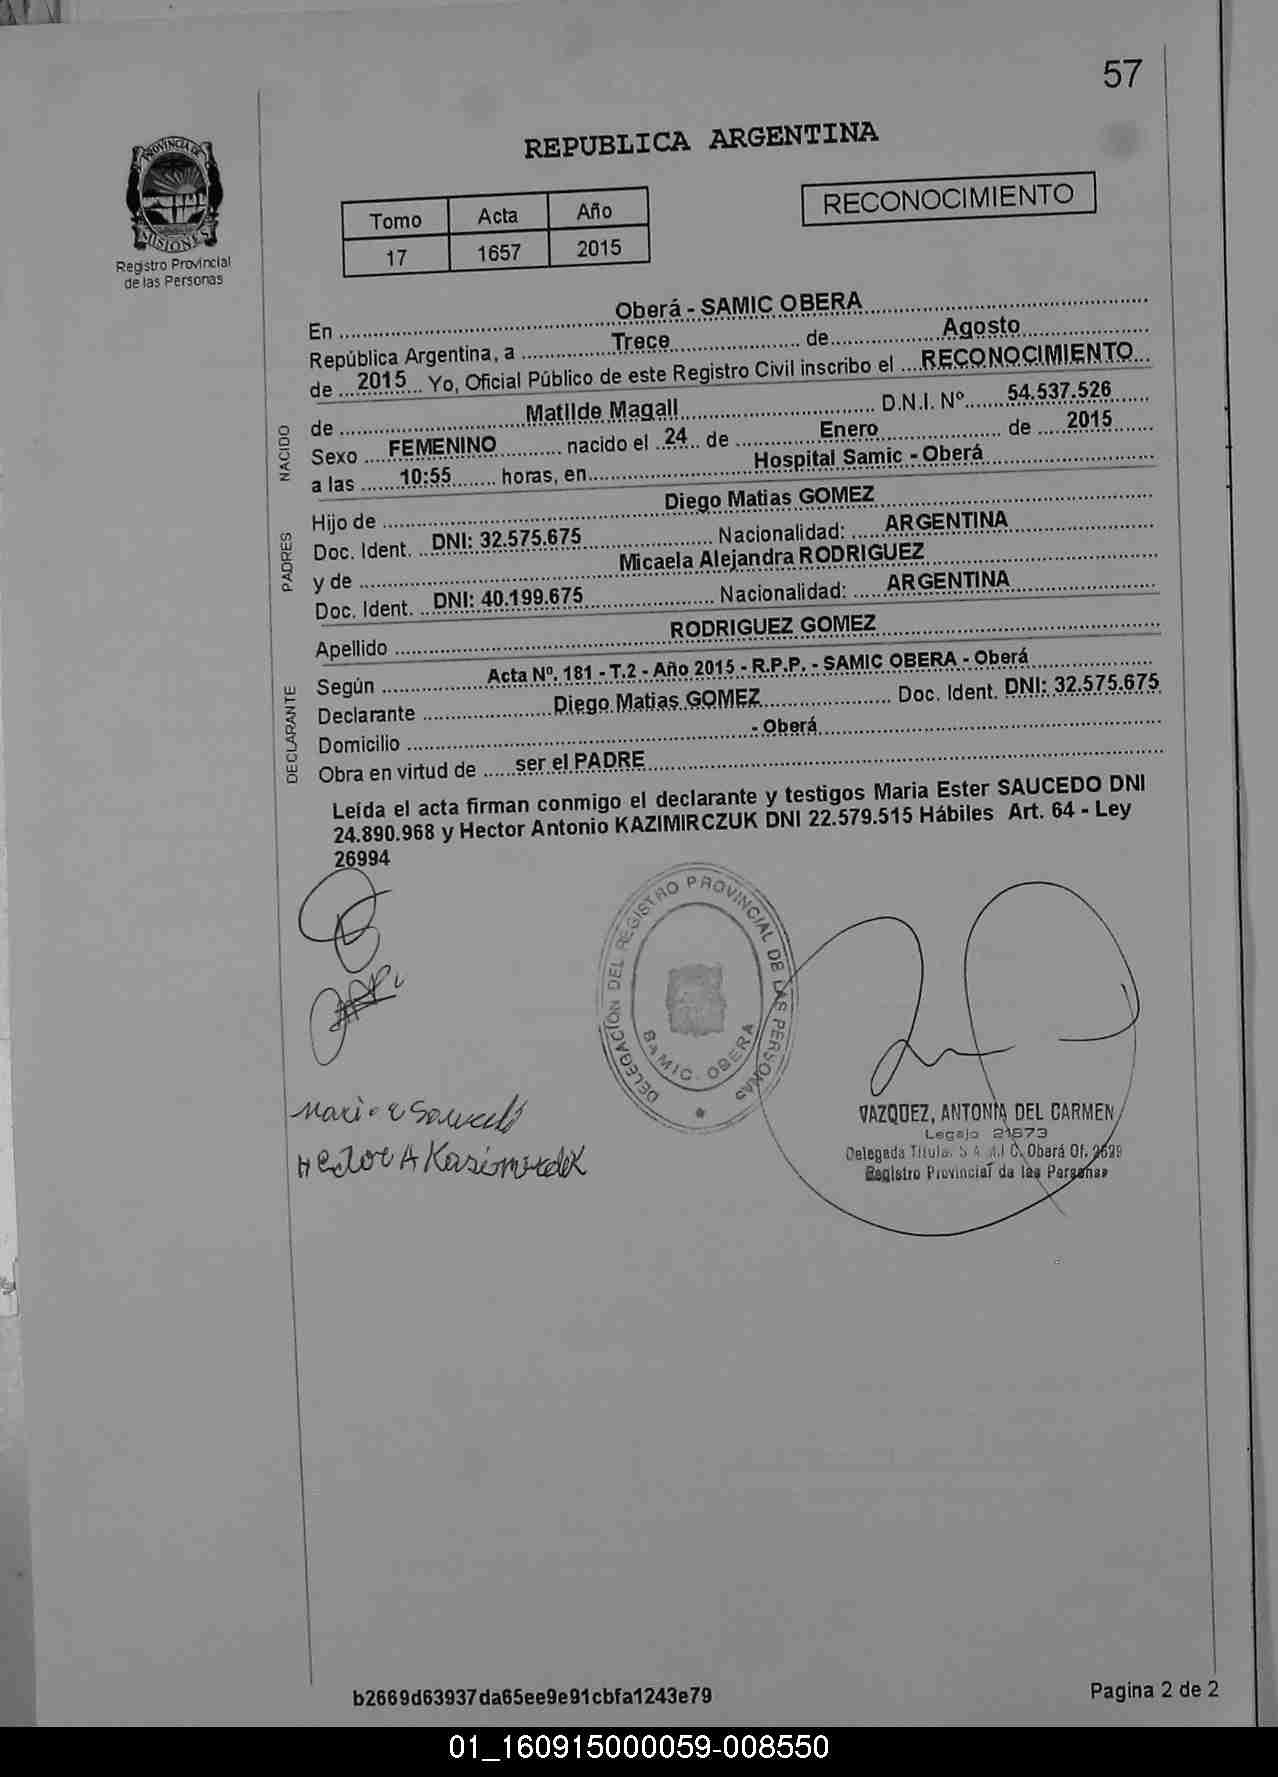 57
REPUBLICA ARGENTINA
PROVINCIA DE
MISIONES
Registro Provincial
de las Personas
Tomo Acta Año
17 1657 2015
RECONOCIMIENTO
En Oberá - SAMIC OBERA
República Argentina, a Trece de Agosto
de 2015 Yo, Oficial Público de este Registro Civil inscribo el RECONOCIMIENTO
NACIDO
de Matilde Magalí D.N.I. Nº 54.537.526
Sexo FEMENINO nacido el 24 de Enero de 2015
a las 10:55 horas, en Hospital Samic - Oberá
PADRES
Hijo de Diego Matias GOMEZ
Doc. Ident. DNI: 32.575.675 Nacionalidad: ARGENTINA
y de Micaela Alejandra RODRIGUEZ
Doc. Ident. DNI: 40.199.675 Nacionalidad: ARGENTINA
Apellido RODRIGUEZ GOMEZ
DECLARANTE
Según Acta Nº. 181 - T.2 - Año 2015 - R.P.P. - SAMIC OBERA - Oberá
Declarante Diego Matias GOMEZ Doc. Ident. DNI: 32.575.675
Domicilio - Oberá
Obra en virtud de ser el PADRE
Leída el acta firman conmigo el declarante y testigos Maria Ester SAUCEDO DNI
24.890.968 y Hector Antonio KAZIMIRCZUK DNI 22.579.515 Hábiles Art. 64 - Ley
26994
DELEGACIÓN DEL REGISTRO PROVINCIAL DE LAS PERSONAS
SAMIC - OBERA
Hector A
VAZQUEZ, ANTONIA DEL CARMEN
Legajo 21873
Delegada Titular S.A.M.I.C. Oberá Of. 2629
Registro Provincial de las Personas
b2669d63937da65ee9e91cbfa1243e79
Pagina 2 de 2
01_160915000059-008550